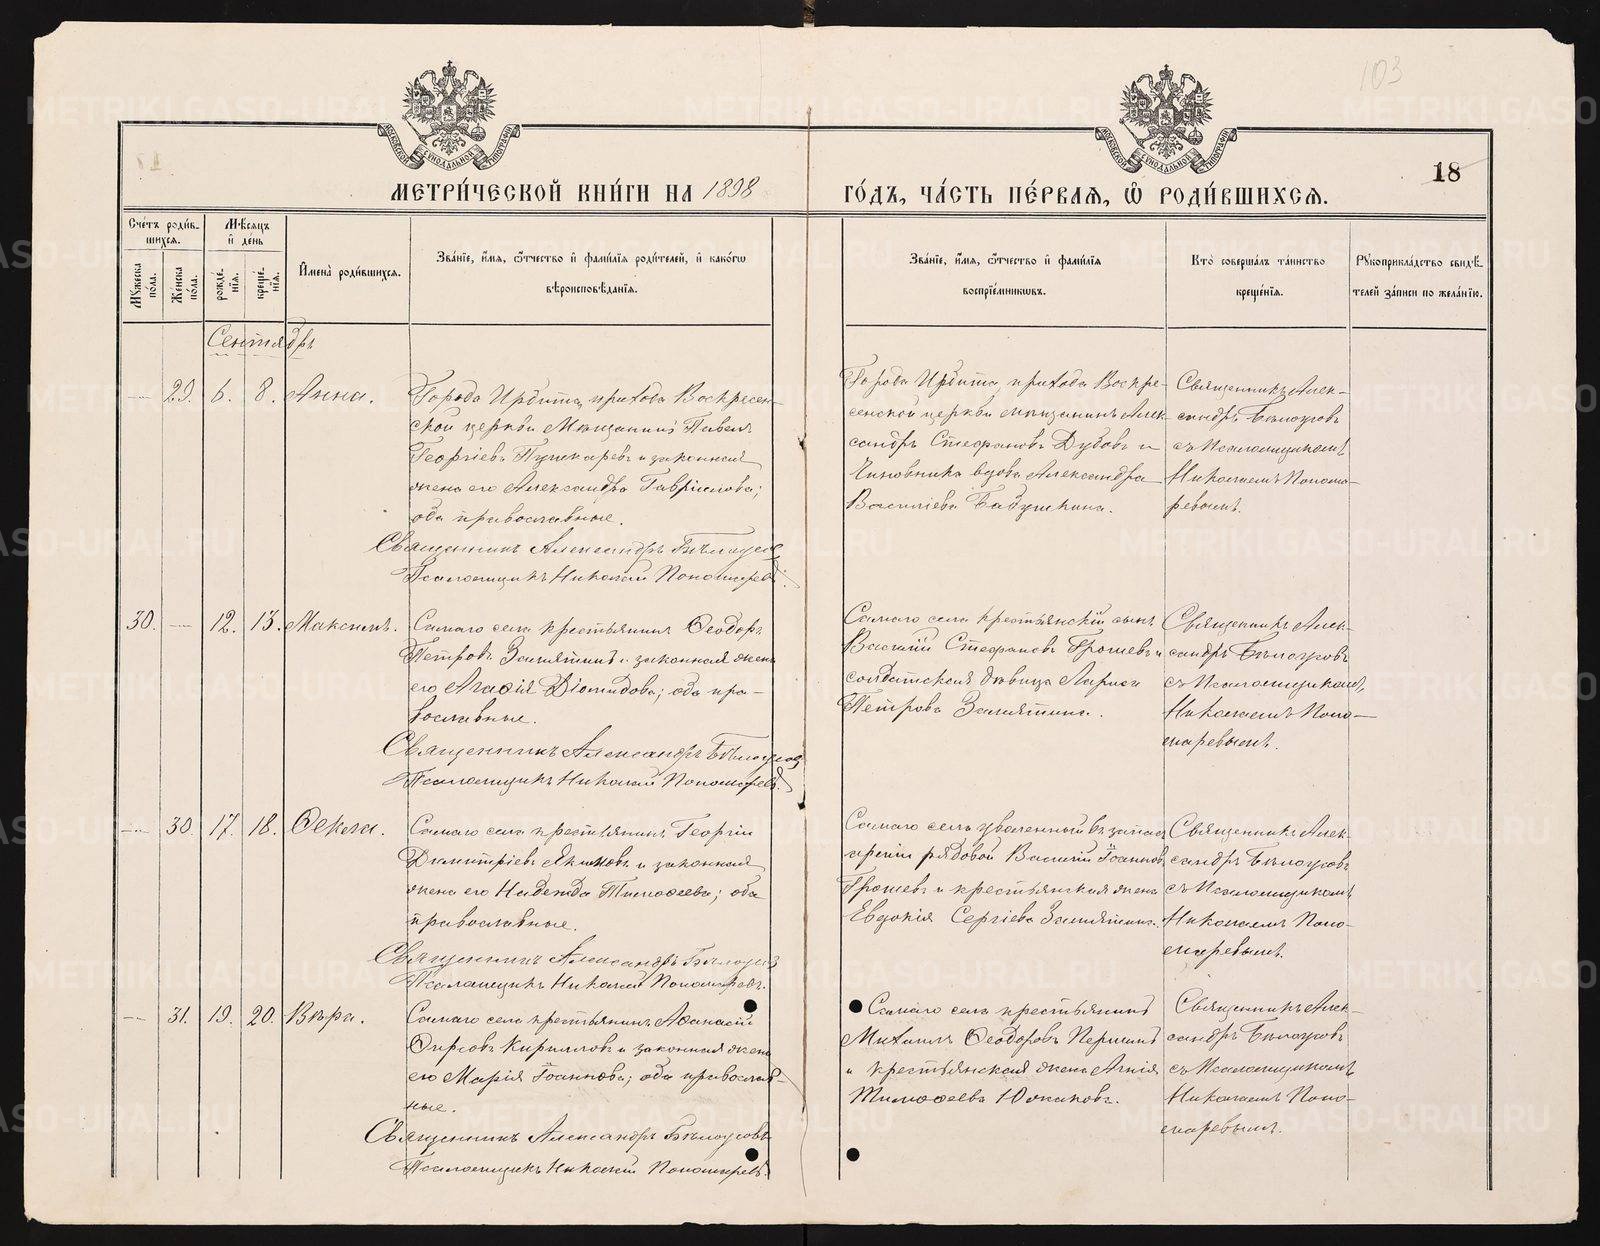 103
МЕТРИ́ЧЕСКОЙ КНИ́ГИ НА 1898
ГО́ДЪ, ЧА́СТЬ ПЕ́РВАѦ, Ѡ РОДИ́ВШИХСѦ.
18
Счетъ роди́в-
шихся.
Мѣсяцъ
и день
Мꙋжеска пола.
Женска пола.
рожде́нія.
креще́нія.
Имена̀ роди́вшихся.
Зва́ніе, и́мя, ѻ́тчество и фами́лія роди́телей, и како́гѡ
вѣроисповѣ́данія.
Зва́ніе, и́мя, ѻ́тчество и фами́лія
воспріе́мникѡвъ.
Кто̀ соверша́лъ та́инство
креще́нія.
Рꙋкоприкла́дство свидѣ́-
телей за́писи по жела́нію.
Сентябрь
29. 6. 8. Анна.
Города Ирбита, прихода Воскресен-
ской церкви Мѣщанинъ Павелъ
Георгіевъ Пушкаревъ и законная
жена его Александра Гавріилова;
оба православные.
Священникъ Александръ Бѣлоусов
Псаломщикъ Николай Пономаревъ.
Города Ирбита, прихода Воскре-
сенской церкви мѣщанинъ Алек-
сандръ Стефановъ Дубовъ и
Чиновника вдова Александра
Василіева Бабушкина.
Священникъ Алек-
сандръ Бѣлоусовъ
съ Псаломщикомъ
Николаемъ Понома-
ревымъ.
30. 12. 13. Максимъ.
Самаго села крестьянинъ Ѳеодоръ
Петровъ Замятинъ и законная жена
его Агаѳія Діомидова; оба пра-
вославные.
Священникъ Александръ Бѣлоусов
Псаломщикъ Николай Пономаревъ.
Самаго села крестьянскій сынъ
Василій Стефановъ Грошевъ и
солдатская дѣвица Лариса
Петрова Замятина.
Священникъ Алек-
сандръ Бѣлоусовъ
съ Псаломщикомъ,
Николаемъ Поно-
маревымъ.
30. 17. 18. Ѳекла.
Самаго села крестьянинъ Георгій
Димитріевъ Якимовъ и законная
жена его Надежда Тимоѳеева; оба
православные.
Священникъ Александръ Бѣлоусов
Псаломщикъ Николай Пономаревъ.
Самаго села уволенный въ запасъ
арміи рядовой Василій Іоанновъ
Грошевъ и крестьянская жена
Евдокія Сергіева Замятина.
Священникъ Алек-
сандръ Бѣлоусовъ
съ Псаломщикомъ
Николаемъ Поно-
маревымъ.
31. 19. 20. Вѣра.
Самаго села крестьянинъ Аѳанасій
Ѳирсовъ Кирилловъ и законная жена
его Марія Іоаннова; оба православ-
ные.
Священникъ Александръ Бѣлоусовъ
Псаломщикъ Николай Пономаревъ.
Самаго села крестьянинъ
Михаилъ Ѳеодоровъ Першинъ
и крестьянская жена Агнія
Тимоѳеева Южакова.
Священникъ Алек-
сандръ Бѣлоусовъ
съ Псаломщикомъ
Николаемъ Поно-
маревымъ.